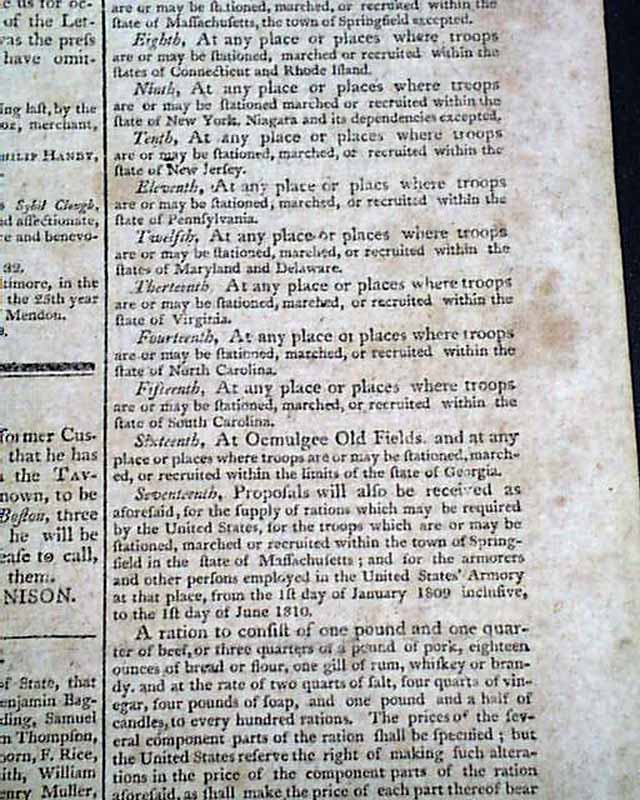 e us for oc-
of the Let-
was the press
have omit-
ing last, by the
oor, merchant,
PHILIP HANDY,
s Sybil Clough,
d affectionate,
re and benevo-
32.
timore, in the
the 25th year
Mendon.
former Cus-
that he has
the TAV-
nown, to be
Boston, three
he will be
ease to call,
them.
NISON.
of State, that
enjamin Bag-
ding, Samuel
n Thompson,
horn, F. Rice,
ith, William
enry Muller,
are or may be stationed, marched, or recruited within the
state of Massachusetts, the town of Springfield excepted.
Eighth, At any place or places where troops
are or may be stationed, marched or recruited within the
states of Connecticut and Rhode Island.
Ninth, At any place or places where troops
are or may be stationed marched or recruited within the
state of New York, Niagara and its dependencies excepted.
Tenth, At any place or places where troops
are or may be stationed, marched, or recruited within the
state of New Jersey.
Eleventh, At any place or placs where troops
are or may be stationed, marched, or recruited within the
state of Pennsylvania.
Twelfth, At any place or places where troops
are or may be stationed, marched, or recruited within the
states of Maryland and Delaware.
Therteenth, At any place or places where troops
are or may be stationed, marched, or recruited within the
state of Virginia.
Fourteenth, At any place or places where troops
are or may be stationed, marched, or recruited within the
state of North Carolina.
Fifteenth, At any place or places where troops
are or may be stationed, marched, or recruited within the
state of South Carolina.
Sixteenth, At Ocmulgee Old Fields. and at any
place or places where troops are or may be stationed, march-
ed, or recruited within the limits of the state of Georgia.
Seventeenth, Proposals will also be received as
aforesaid, for the supply of rations which may be required
by the United States, for the troops which are or may be
stationed, marched or recruited within the town of Spring-
field in the state of Massachusetts ; and for the armorers
and other persons employed in the United States' Armory
at that place, from the 1st day of January 1809 inclusive,
to the 1st day of June 1810.
A ration to consist of one pound and one quar-
ter of beef, or three quarters of a pound of pork, eighteen
ounces of bread or flour, one gill of rum, whiskey or bran-
dy. and at the rate of two quarts of salt, four quarts of vin-
egar, four pounds of soap, and one pound and a half of
candles, to every hundred rations. The prices of the sev-
eral component parts of the ration shall be specified ; but
the United States reserve the right of making such altera-
tions in the price of the component parts of the ration
aforesaid, as shall make the price of each part thereof bear